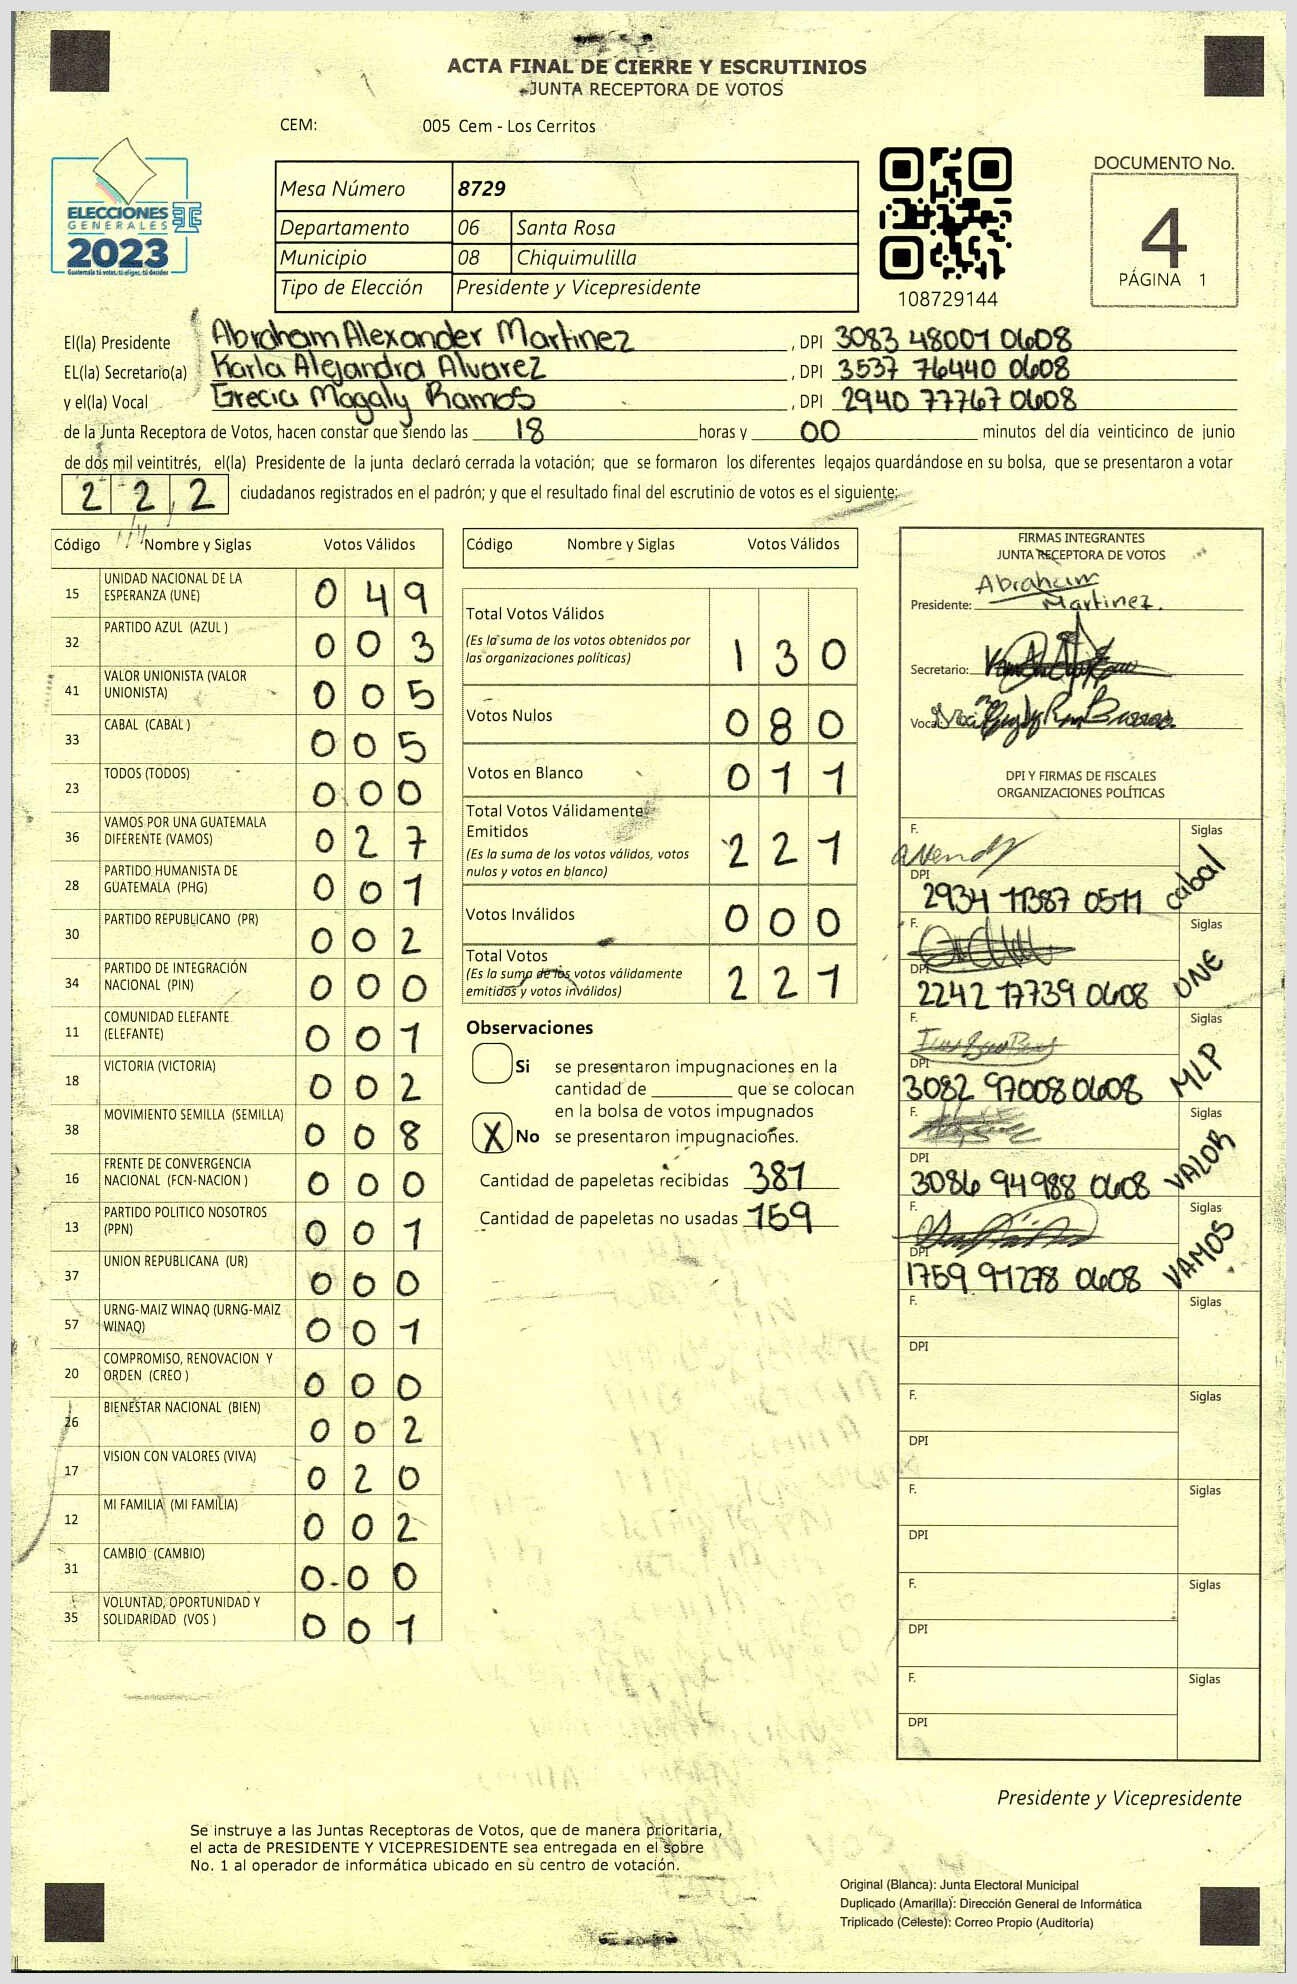 ACTA FINAL DE CIERRE Y ESCRUTINIOS
JUNTA RECEPTORA DE VOTOS
CEM: 005 Cem - Los Cerritos
ELECCIONES
GENERALES
2023
Guatemala tú votas, tú eliges, tú decides
Mesa Número 8729
Departamento 06 Santa Rosa
Municipio 08 Chiquimulilla
Tipo de Elección Presidente y Vicepresidente
108729144
DOCUMENTO No.
4
PÁGINA 1
El(la) Presidente Abraham Alexander Martinez, DPI 3083 48001 0608
EL(la) Secretario(a) Karla Alejandra Alvarez, DPI 3537 76440 0608
y el(la) Vocal Grecia Magaly Ramos, DPI 2940 77767 0608
de la Junta Receptora de Votos, hacen constar que siendo las 18 horas y 00 minutos del día veinticinco de junio
de dos mil veintitrés, el(la) Presidente de la junta declaró cerrada la votación; que se formaron los diferentes legajos guardándose en su bolsa, que se presentaron a votar
222 ciudadanos registrados en el padrón; y que el resultado final del escrutinio de votos es el siguiente:
Código Nombre y Siglas Votos Válidos
15 UNIDAD NACIONAL DE LA ESPERANZA (UNE) 049
32 PARTIDO AZUL (AZUL ) 003
41 VALOR UNIONISTA (VALOR UNIONISTA) 005
33 CABAL (CABAL ) 005
23 TODOS (TODOS) 000
36 VAMOS POR UNA GUATEMALA DIFERENTE (VAMOS) 027
28 PARTIDO HUMANISTA DE GUATEMALA (PHG) 001
30 PARTIDO REPUBLICANO (PR) 002
34 PARTIDO DE INTEGRACIÓN NACIONAL (PIN) 000
11 COMUNIDAD ELEFANTE (ELEFANTE) 001
18 VICTORIA (VICTORIA) 002
38 MOVIMIENTO SEMILLA (SEMILLA) 008
16 FRENTE DE CONVERGENCIA NACIONAL (FCN-NACION ) 000
13 PARTIDO POLITICO NOSOTROS (PPN) 001
37 UNION REPUBLICANA (UR) 000
57 URNG-MAIZ WINAQ (URNG-MAIZ WINAQ) 001
20 COMPROMISO, RENOVACION Y ORDEN (CREO ) 000
26 BIENESTAR NACIONAL (BIEN) 002
17 VISION CON VALORES (VIVA) 020
12 MI FAMILIA (MI FAMILIA) 002
31 CAMBIO (CAMBIO) 0-00
35 VOLUNTAD, OPORTUNIDAD Y SOLIDARIDAD (VOS ) 001
Código Nombre y Siglas Votos Válidos
Total Votos Válidos 130
(Es la suma de los votos obtenidos por
las organizaciones políticas)
Votos Nulos 080
Votos en Blanco 011
Total Votos Válidamente
Emitidos 221
(Es la suma de los votos válidos, votos
nulos y votos en blanco)
Votos Inválidos 000
Total Votos 221
(Es la suma de los votos válidamente
emitidos y votos inválidos)
Observaciones
Si se presentaron impugnaciones en la
cantidad de ________ que se colocan
en la bolsa de votos impugnados
X No se presentaron impugnaciones.
Cantidad de papeletas recibidas 381
Cantidad de papeletas no usadas 159
FIRMAS INTEGRANTES
JUNTA RECEPTORA DE VOTOS
Presidente: Abraham
Martinez.
Secretario:
Vocal:
DPI Y FIRMAS DE FISCALES
ORGANIZACIONES POLÍTICAS
F. Siglas
DPI 2934 11387 0511 cabal
F. Siglas
DPI 2242 17739 0608 UNE
F. Siglas
DPI 3082 97008 0608 MLP
F. Siglas
DPI 3086 94988 0608 VALOR
F. Siglas
DPI 1759 91278 0608 VAMOS
F. Siglas
DPI
F. Siglas
DPI
F. Siglas
DPI
F. Siglas
DPI
F. Siglas
DPI
Presidente y Vicepresidente
Se instruye a las Juntas Receptoras de Votos, que de manera prioritaria,
el acta de PRESIDENTE Y VICEPRESIDENTE sea entregada en el sobre
No. 1 al operador de informática ubicado en su centro de votación.
Original (Blanca): Junta Electoral Municipal
Duplicado (Amarilla): Dirección General de Informática
Triplicado (Celeste): Correo Propio (Auditoria)